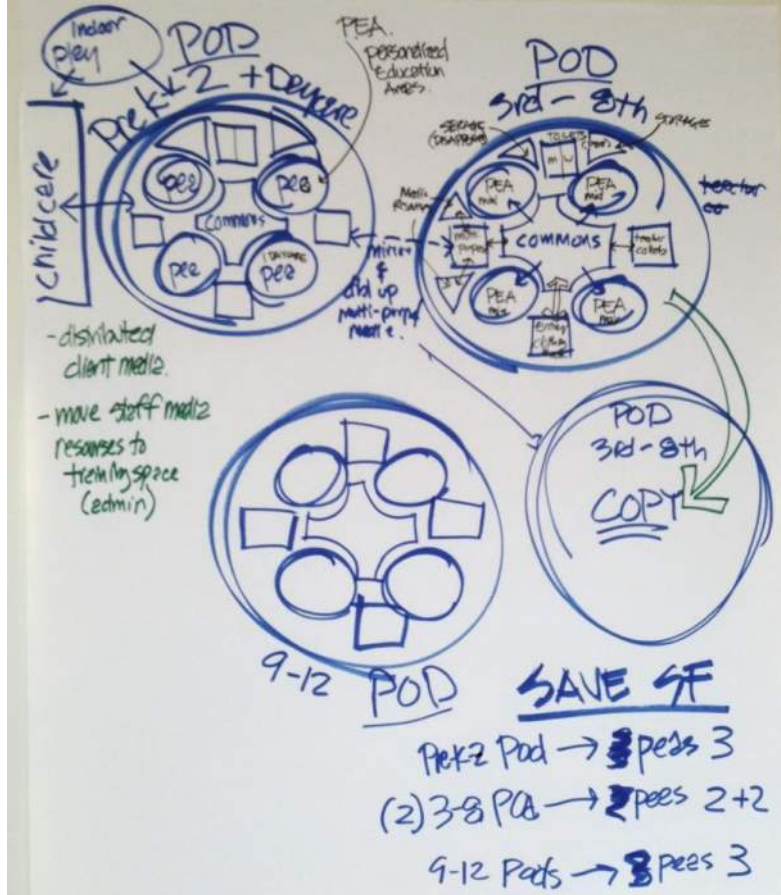 Indoor
play
POD
PreK-2 + Daycare
PEA.
personalized
Education
Areas.
childcare
pea
pea
commons
pea
1 DAYCARE
pea
- distributed
client media.
- move staff media
resourses to
training space
(admin)
mirror
&
dbl up
multi-purp
POD
3rd - 8th
SERVICE
TOILETS
STORAGE
M W
PEA
PEA
COMMONS
PEA
PEA
teacher
POD
3rd - 8th
COPY
9-12 POD
SAVE SF
PreK-2 Pod → peas 3
(2) 3-8 POd → peas 2+2
9-12 Pods → peas 3